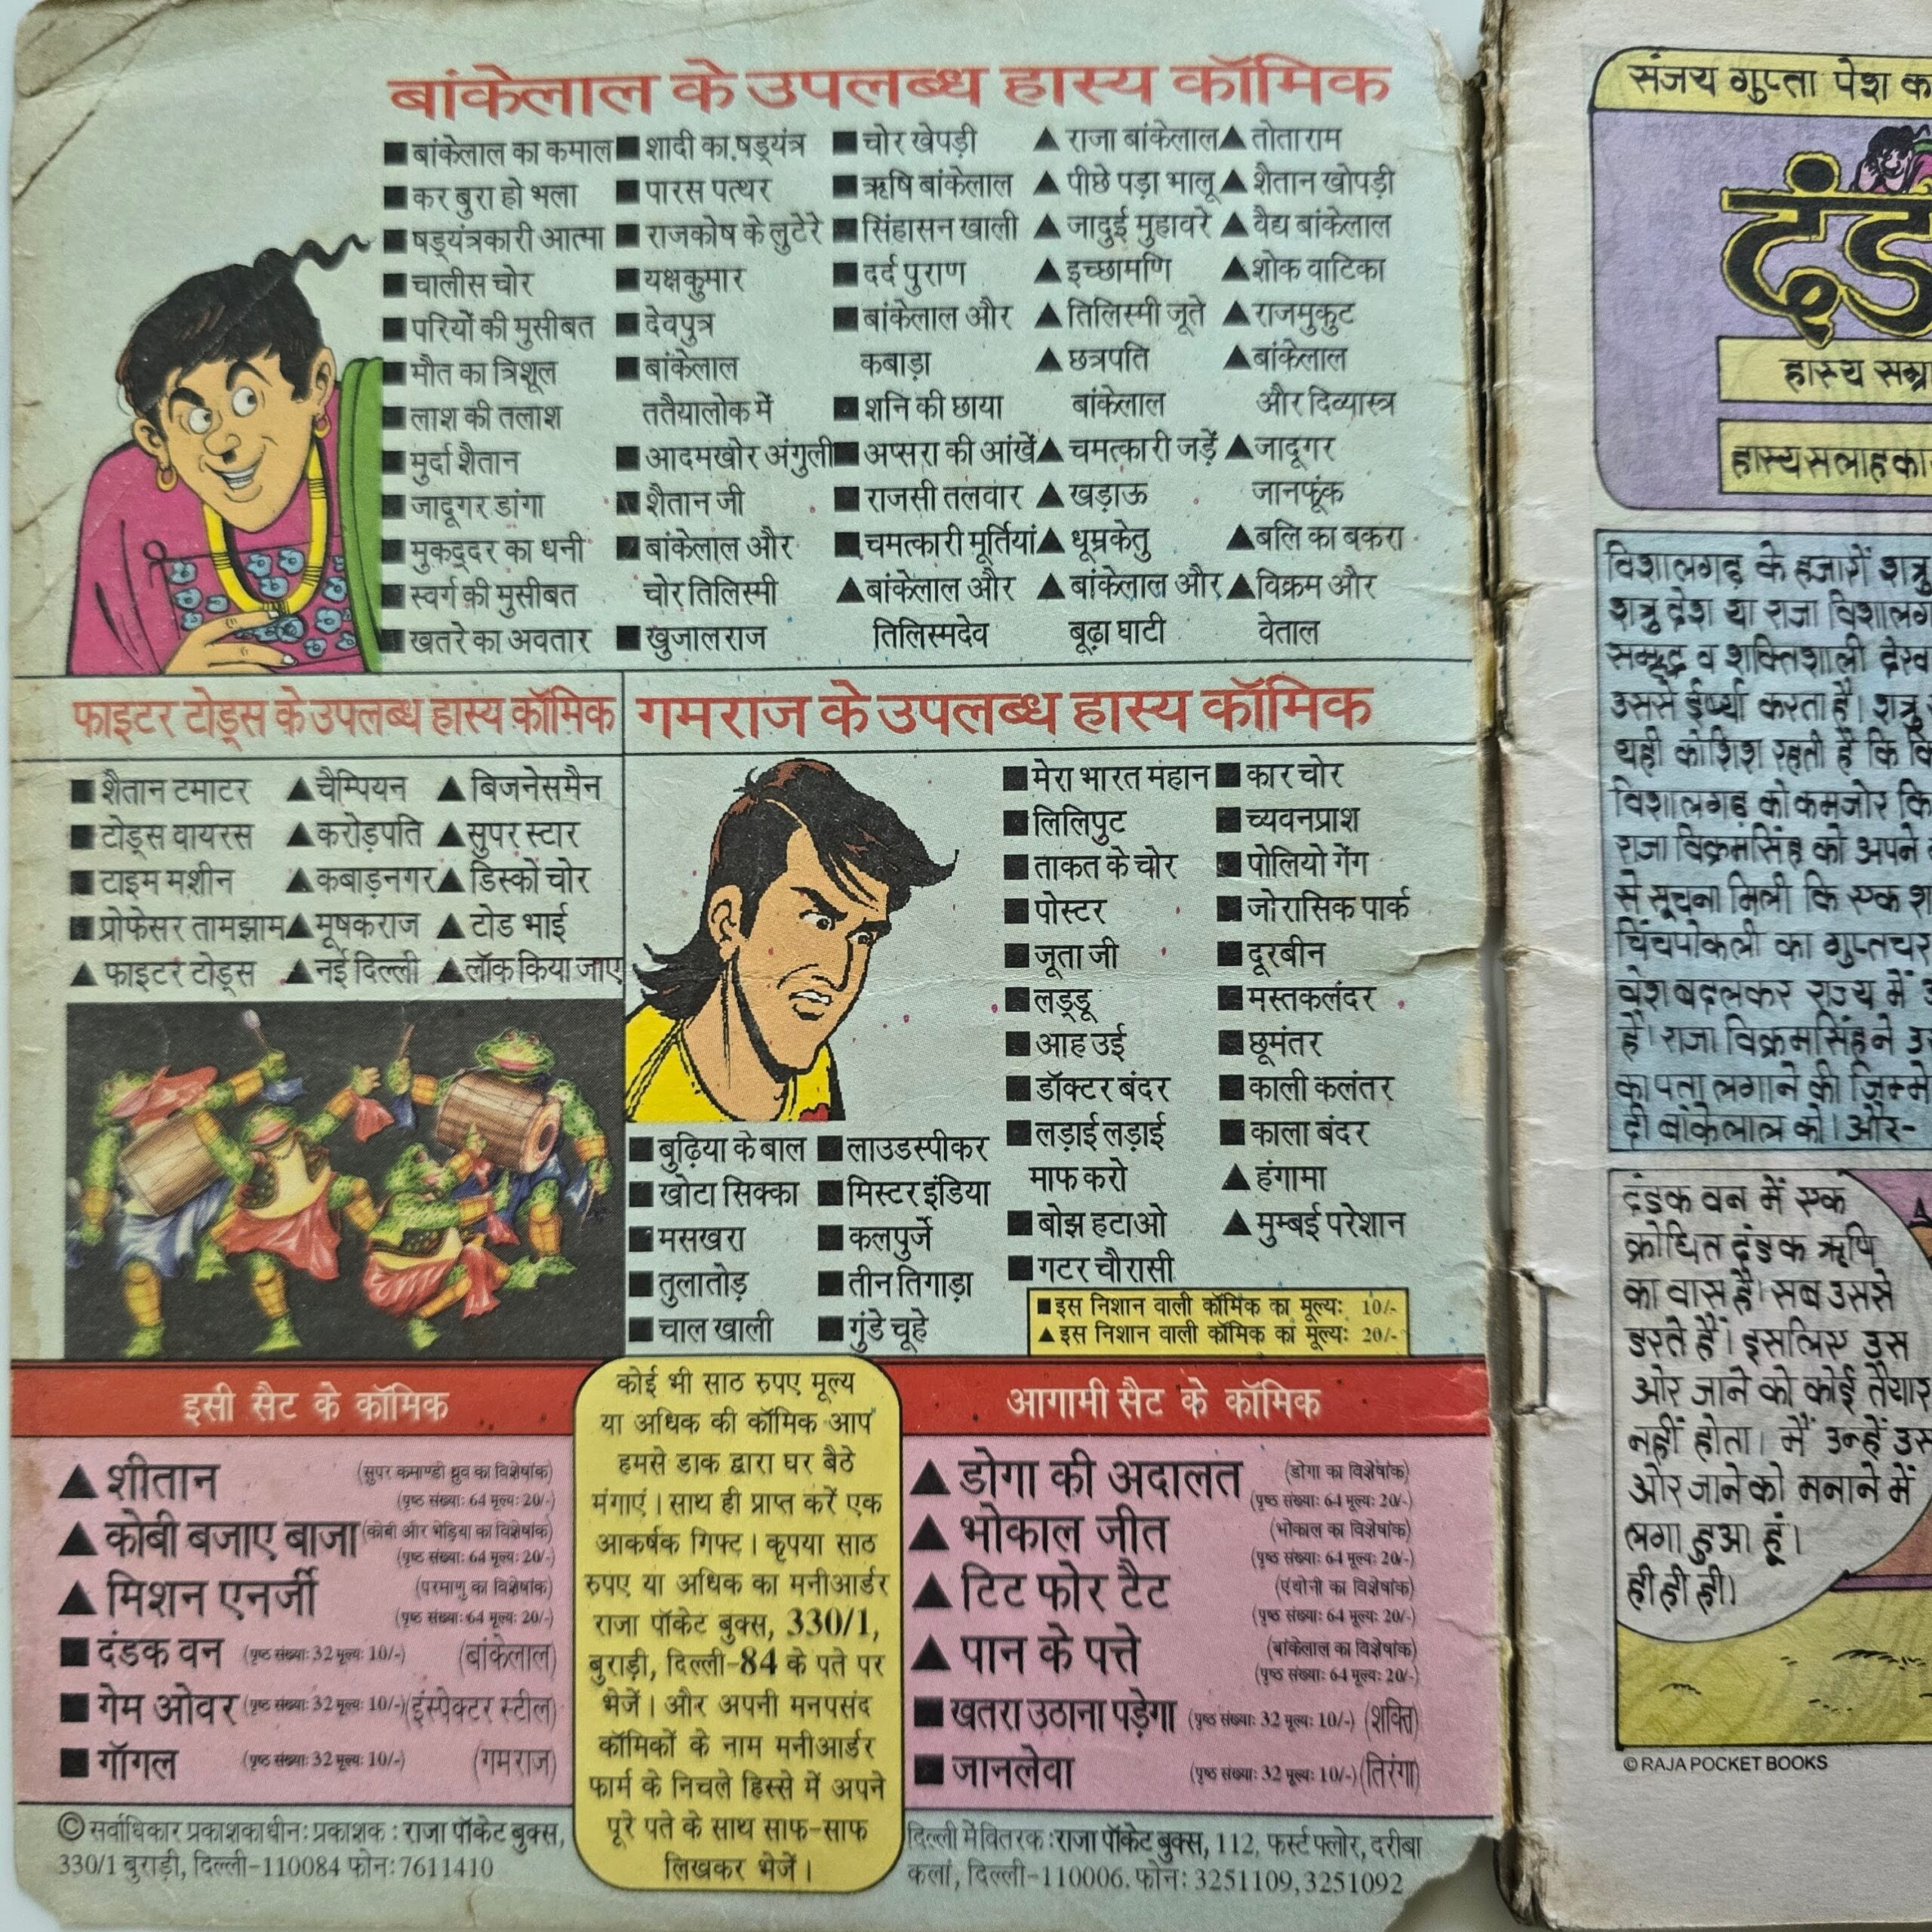 बांकेलाल के उपलब्ध हास्य कॉमिक
■ बांकेलाल का कमाल
■ कर बुरा हो भला
■ षड्यंत्रकारी आत्मा
■ चालीस चोर
■ परियों की मुसीबत
■ मौत का त्रिशूल
■ लाश की तलाश
■ मुर्दा शैतान
■ जादूगर डांगा
■ मुकद्दर का धनी
■ स्वर्ग की मुसीबत
■ खतरे का अवतार
■ शादी का षड्यंत्र
■ पारस पत्थर
■ राजकोष के लुटेरे
■ यक्षकुमार
■ देवपुत्र
■ बांकेलाल
ततैयालोक में
■ आदमखोर अंगुली
■ शैतान जी
■ बांकेलाल और
चोर तिलिस्मी
■ खुजालराज
■ चोर खेपड़ी
■ ऋषि बांकेलाल
■ सिंहासन खाली
■ दर्द पुराण
■ बांकेलाल और
कबाड़ा
■ शनि की छाया
■ अप्सरा की आंखें
■ राजसी तलवार
■ चमत्कारी मूर्तियां
▲ बांकेलाल और
तिलिस्मदेव
▲ राजा बांकेलाल
▲ पीछे पड़ा भालू
▲ जादुई मुहावरे
▲ इच्छामणि
▲ तिलिस्मी जूते
▲ छत्रपति
बांकेलाल
▲ चमत्कारी जड़ें
▲ खड़ाऊ
▲ धूम्रकेतु
▲ बांकेलाल और
बूढ़ा घाटी
▲ तोताराम
▲ शैतान खोपड़ी
▲ वैद्य बांकेलाल
▲ शोक वाटिका
▲ राजमुकुट
▲ बांकेलाल
और दिव्यास्त्र
▲ जादूगर
जानफूंक
▲ बलि का बकरा
▲ विक्रम और
वेताल
फाइटर टोड्स के उपलब्ध हास्य कॉमिक
■ शैतान टमाटर
■ टोड्स वायरस
■ टाइम मशीन
■ प्रोफेसर तामझाम
▲ फाइटर टोड्स
▲ चैम्पियन
▲ करोड़पति
▲ कबाड़नगर
▲ मूषकराज
▲ नई दिल्ली
▲ बिजनेसमैन
▲ सुपर स्टार
▲ डिस्को चोर
▲ टोड भाई
▲ लॉक किया जाए
गमराज के उपलब्ध हास्य कॉमिक
■ बुढ़िया के बाल
■ खोटा सिक्का
■ मसखरा
■ तुलातोड़
■ चाल खाली
■ लाउडस्पीकर
■ मिस्टर इंडिया
■ कलपुर्जे
■ तीन तिगाड़ा
■ गुंडे चूहे
■ मेरा भारत महान
■ लिलिपुट
■ ताकत के चोर
■ पोस्टर
■ जूता जी
■ लड्डू
■ आह उई
■ डॉक्टर बंदर
■ लड़ाई लड़ाई
माफ करो
■ बोझ हटाओ
■ गटर चौरासी
■ कार चोर
■ च्यवनप्राश
■ पोलियो गेंग
■ जोरासिक पार्क
■ दूरबीन
■ मस्तकलंदर
■ छूमंतर
■ काली कलंतर
■ काला बंदर
▲ हंगामा
▲ मुम्बई परेशान
■ इस निशान वाली कॉमिक का मूल्य: 10/-
▲ इस निशान वाली कॉमिक का मूल्य: 20/-
इसी सैट के कॉमिक
▲ शीतान (सुपर कमाण्डो ध्रुव का विशेषांक)
(पृष्ठ संख्या: 64 मूल्य: 20/-)
▲ कोबी बजाए बाजा (कोबी और भेड़िया का विशेषांक)
(पृष्ठ संख्या: 64 मूल्य: 20/-)
▲ मिशन एनर्जी (परमाणु का विशेषांक)
(पृष्ठ संख्या: 64 मूल्य: 20/-)
■ दंडक वन (पृष्ठ संख्या: 32 मूल्य: 10/-) (बांकेलाल)
■ गेम ओवर (पृष्ठ संख्या: 32 मूल्य: 10/-) (इंस्पेक्टर स्टील)
■ गॉगल (पृष्ठ संख्या: 32 मूल्य: 10/-) (गमराज)
कोई भी साठ रुपए मूल्य
या अधिक की कॉमिक आप
हमसे डाक द्वारा घर बैठे
मंगाएं। साथ ही प्राप्त करें एक
आकर्षक गिफ्ट। कृपया साठ
रुपए या अधिक का मनीआर्डर
राजा पॉकेट बुक्स, 330/1,
बुराड़ी, दिल्ली-84 के पते पर
भेजें। और अपनी मनपसंद
कॉमिकों के नाम मनीआर्डर
फार्म के निचले हिस्से में अपने
पूरे पते के साथ साफ-साफ
लिखकर भेजें।
आगामी सैट के कॉमिक
▲ डोगा की अदालत (डोगा का विशेषांक)
(पृष्ठ संख्या: 64 मूल्य: 20/-)
▲ भोकाल जीत (भोकाल का विशेषांक)
(पृष्ठ संख्या: 64 मूल्य: 20/-)
▲ टिट फोर टैट (एंथोनी का विशेषांक)
(पृष्ठ संख्या: 64 मूल्य: 20/-)
▲ पान के पत्ते (बांकेलाल का विशेषांक)
(पृष्ठ संख्या: 64 मूल्य: 20/-)
■ खतरा उठाना पड़ेगा (पृष्ठ संख्या: 32 मूल्य: 10/-) (शक्ति)
■ जानलेवा (पृष्ठ संख्या: 32 मूल्य: 10/-) (तिरंगा)
© सर्वाधिकार प्रकाशकाधीन: प्रकाशक : राजा पॉकेट बुक्स,
330/1 बुराड़ी, दिल्ली-110084 फोन: 7611410
दिल्ली में वितरक : राजा पॉकेट बुक्स, 112, फर्स्ट फ्लोर, दरीबा
कलां, दिल्ली-110006. फोन: 3251109, 3251092
संजय गुप्ता पेश क
दंड
हास्य सम्रा
हास्य सलाहका
विशालगढ़ के हजारों शत्रु
शत्रु देश या राजा विशालग
समृद्ध व शक्तिशाली देख
उससे ईर्ष्या करता है। शत्रु
यही कोशिश रहती है कि वि
विशालगढ़ को कमजोर कि
राजा विक्रमसिंह को अपने
से सूचना मिली कि एक श
चिंचपोकली का गुप्तचर
वेश बदलकर राज्य में
है। राजा विक्रमसिंह ने उ
का पता लगाने की जिम्मे
दी बांकेलाल को। और-
दंडक वन में एक
क्रोधित दंडक ऋषि
का वास है। सब उससे
डरते हैं। इसलिए उस
ओर जाने को कोई तैयार
नहीं होता। मैं उन्हें उस
ओर जाने को मनाने में
लगा हुआ हूं।
ही ही ही।
© RAJA POCKET BOOKS